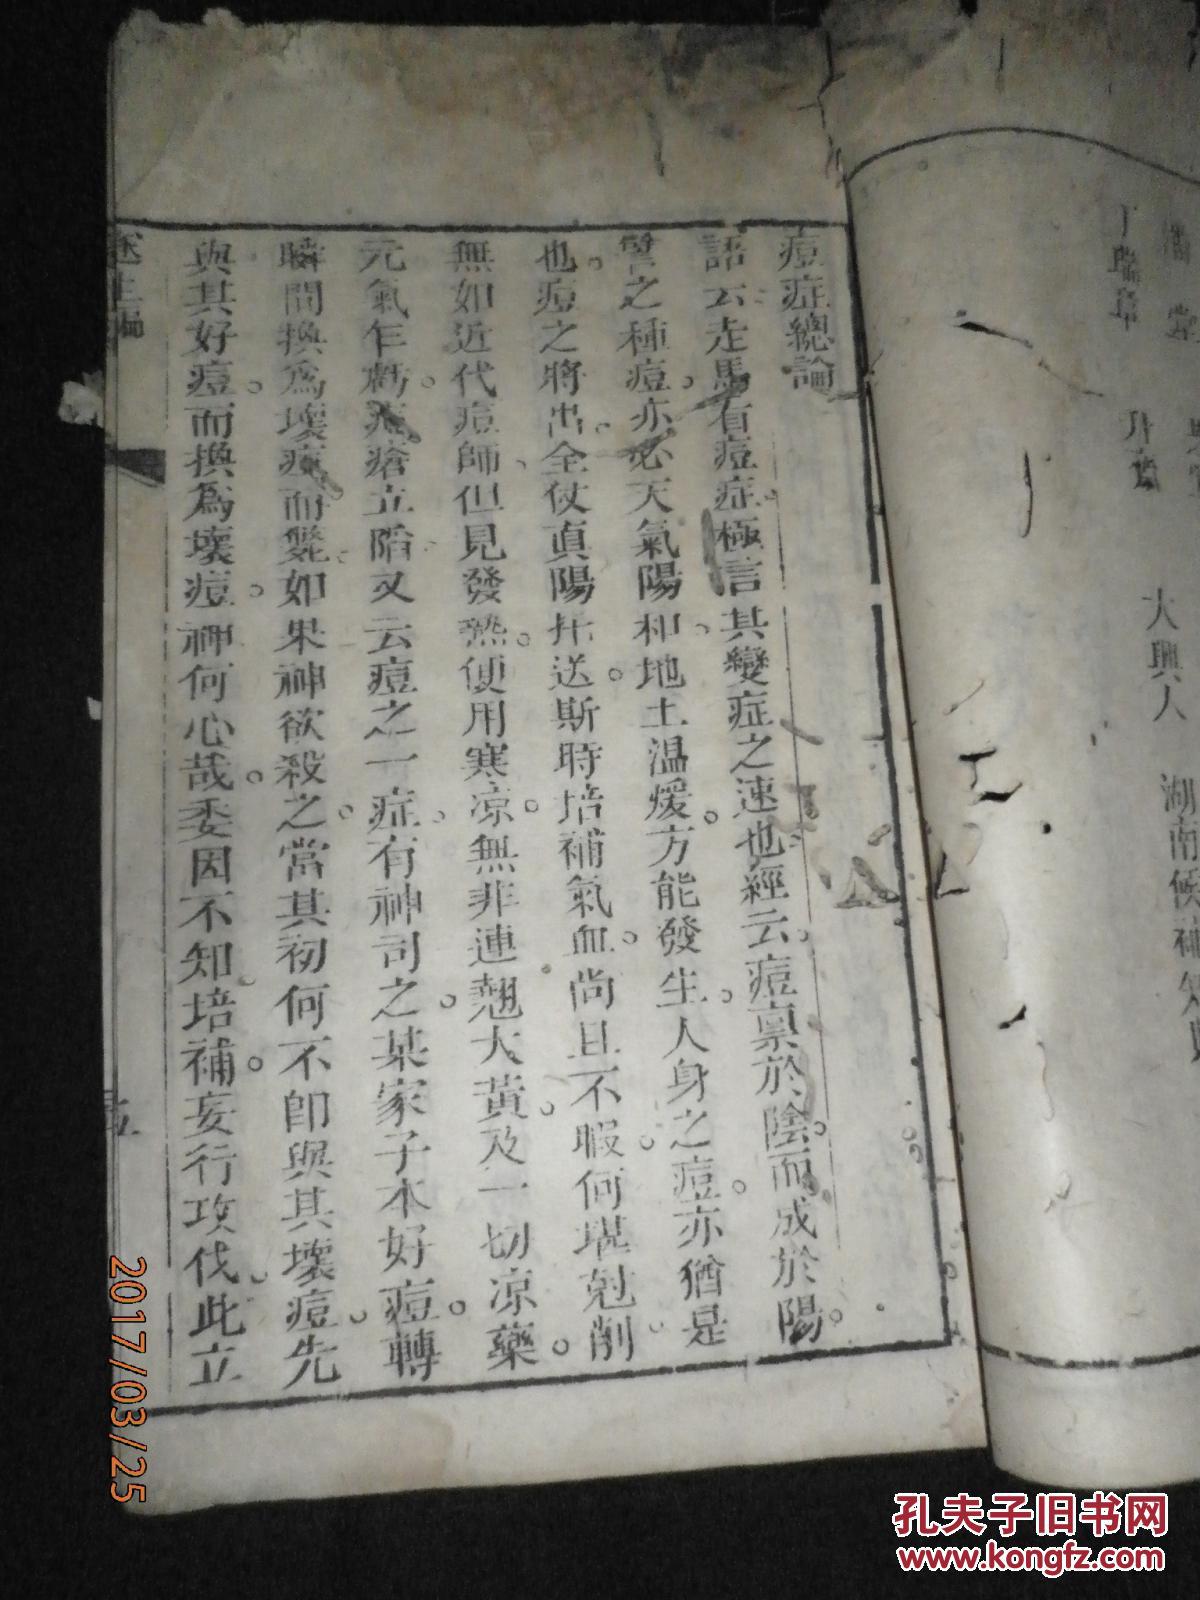 丁瑞章
升吉
大興人
湖南候補知
痘症總論
語云走馬看痘症極言其變症之速也經云痘禀於陰而成於陽
譬之種痘亦必天氣陽和地土温煖方能發生人身之痘亦猶是
也痘之將出全仗眞陽托送斯時培補氣血尚且不暇何堪尅削
無如近代痘師但見發熱便用寒凉無非連翹大黄及一切凉藥
元氣乍虧痘瘡立陷又云痘之一症有神司之某家子本好痘轉
瞬間換爲壞痘而斃如果神欲殺之當其初何不卽與其壞痘先
與其好痘而換爲壞痘神何心哉委因不知培補妄行攻伐此立
遂生編
五
2017/03/25
孔夫子旧书网
www.kongfz.com